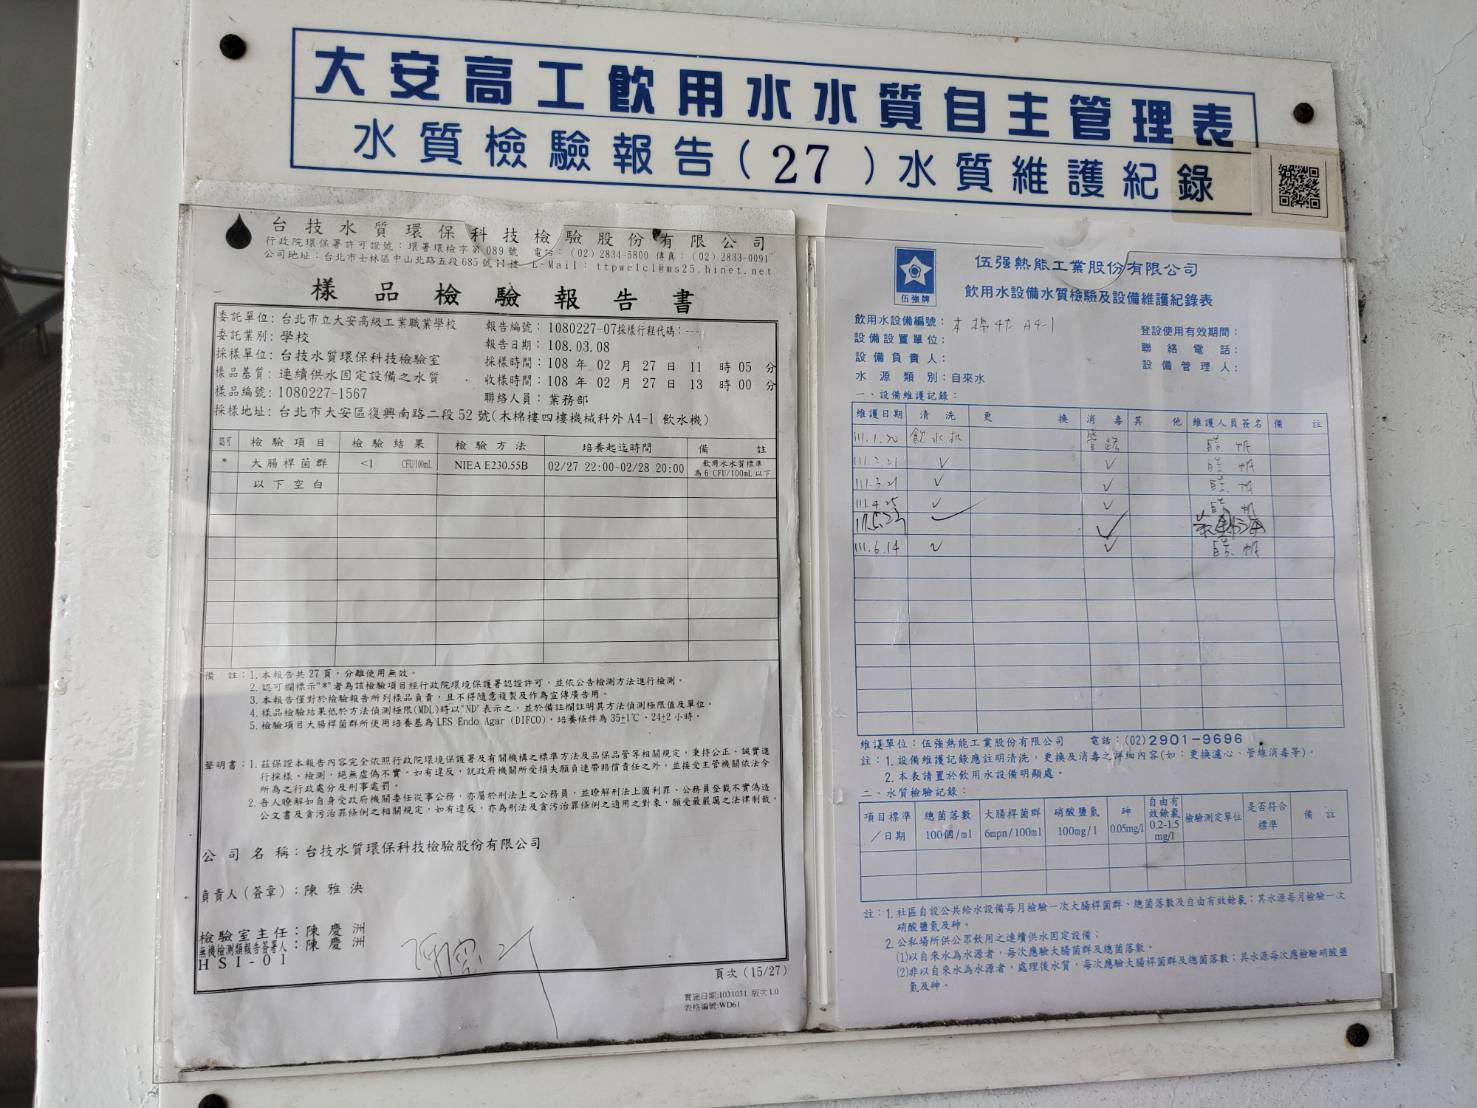 大安高工飲用水水質自主管理表
水質檢驗報告(27)水質維護紀錄
台技水質環保科技檢驗股份有限公司
行政院環保署許可證號：環署環檢字第089號 電話：(02)2834-5800 傳真：(02)2833-0091
公司地址：台北市士林區中山北路五段685號11樓 E-Mail：ttpwelcl@ms25.hinet.net
樣品檢驗報告書
委託單位：台北市立大安高級工業職業學校 報告編號：1080227-07採樣行程代碼：---
委託業別：學校 報告日期：108.03.08
採樣單位：台技水質環保科技檢驗室 採樣時間：108 年 02 月 27 日 11 時 05 分
樣品基質：連續供水固定設備之水質 收樣時間：108 年 02 月 27 日 13 時 00 分
樣品編號：1080227-1567 聯絡人員：業務部
採樣地址：台北市大安區復興南路二段52號(木棉樓四樓機械科外 A4-1 飲水機)
認可 檢驗項目 檢驗結果 檢驗方法 培養起迄時間 備註
* 大腸桿菌群 <1 CFU/100mL NIEA E230.55B 02/27 22:00-02/28 20:00 飲用水水質標準為6 CFU/100mL以下
以下空白
備 註：1.本報告共27頁，分離使用無效。
2.認可欄標示"*"者為該檢驗項目經行政院環境保護署認證許可，並依公告檢測方法進行檢測。
3.本報告僅對於檢驗報告所列樣品負責，且不得隨意複製及作為宣傳廣告用。
4.樣品檢驗結果低於方法偵測極限(MDL)時以"ND"表示之，並於備註欄註明其方法偵測極限值及單位。
5.檢驗項目大腸桿菌群所使用培養基為LES Endo Agar (DIFCO)，培養條件為35±1℃，24±2小時。
聲明書：1.茲保證本報告內容完全依照行政院環境保護署及有關機構之標準方法及品保品管等相關規定，秉持公正、誠實進
行採樣、檢測，絕無虛偽不實，如有違反，就政府機關所受損失願負連帶賠償責任之外，並接受主管機關依法令
所為之行政處分及刑事處罰。
2.吾人瞭解如自身受政府機關委任從事公務，亦屬於刑法上之公務員，並瞭解刑法上圖利罪、公務員登載不實偽造
公文書及貪污治罪條例之相關規定，如有違反，亦為刑法及貪污治罪條例之適用之對象，願受最嚴厲之法律制裁。
公司名稱：台技水質環保科技檢驗股份有限公司
負責人(簽章)：陳雅泱
檢驗室主任：陳慶洲
無機檢測類報告簽署人：陳慶洲
HSI-01
頁次 (15/27)
實施日期:1031031 版次1.0
表格編號:WD61
伍強牌
伍强熱能工業股份有限公司
飲用水設備水質檢驗及設備維護紀錄表
飲用水設備編號：木棉4F A4-1 登設使用有效期間：
設備設置單位： 聯絡電話：
設備負責人： 設備管理人：
水源類別：自來水
一、設備維護記錄：
維護日期 清洗 更換 消毒 其他 維護人員簽名 備註
111.1.20 飲水机 管路
111.2.21 ✓ ✓
111.3.21 ✓ ✓
111.4.25 ✓ ✓
111.5.23 ✓ ✓
111.6.14 ✓ ✓
維護單位：伍強熱能工業股份有限公司 電話：(02)2901-9696
註：1.設備維護記錄應註明清洗、更換及消毒之詳細內容(如：更換濾心、管維消毒等)。
2.本表請置於飲用水設備明顯處。
二、水質檢驗記錄：
項目標準／日期 總菌落數 100個/ml 大腸桿菌群 6mpn/100ml 硝酸鹽氮 100mg/l 砷 0.05mg/l 自由有效餘氯 0.2-1.5 mg/l 檢驗測定單位 是否符合標準 備註
註：1.社區自設公共給水設備每月檢驗一次大腸桿菌群、總菌落數及自由有效餘氯；其水源每月檢驗一次
硝酸鹽氮及砷。
2.公私場所供公眾飲用之連續供水固定設備：
(1)以自來水為水源者，每次應驗大腸菌群及總菌落數。
(2)非以自來水為水源者，處理後水質，每次應驗大腸桿菌群及總菌落數；其水源每次應檢驗硝酸鹽
氮及砷。